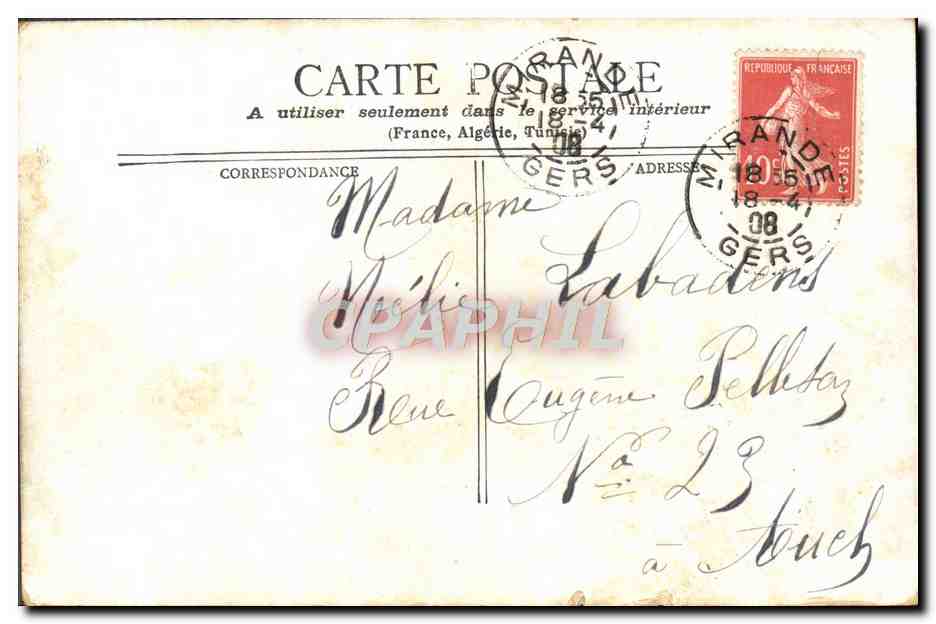 CARTE POSTALE
A utiliser seulement dans le service intérieur
(France, Algérie, Tunisie)
CORRESPONDANCE
ADRESSE
MIRANDE
18 55
18-4
08
GERS
REPUBLIQUE FRANÇAISE
10 c
POSTES
MIRANDE
18 55
18-4
08
GERS
Madame
Mélie Labadens
Rue Eugène Pelletan
No 23
à Auch
CPAPHIL